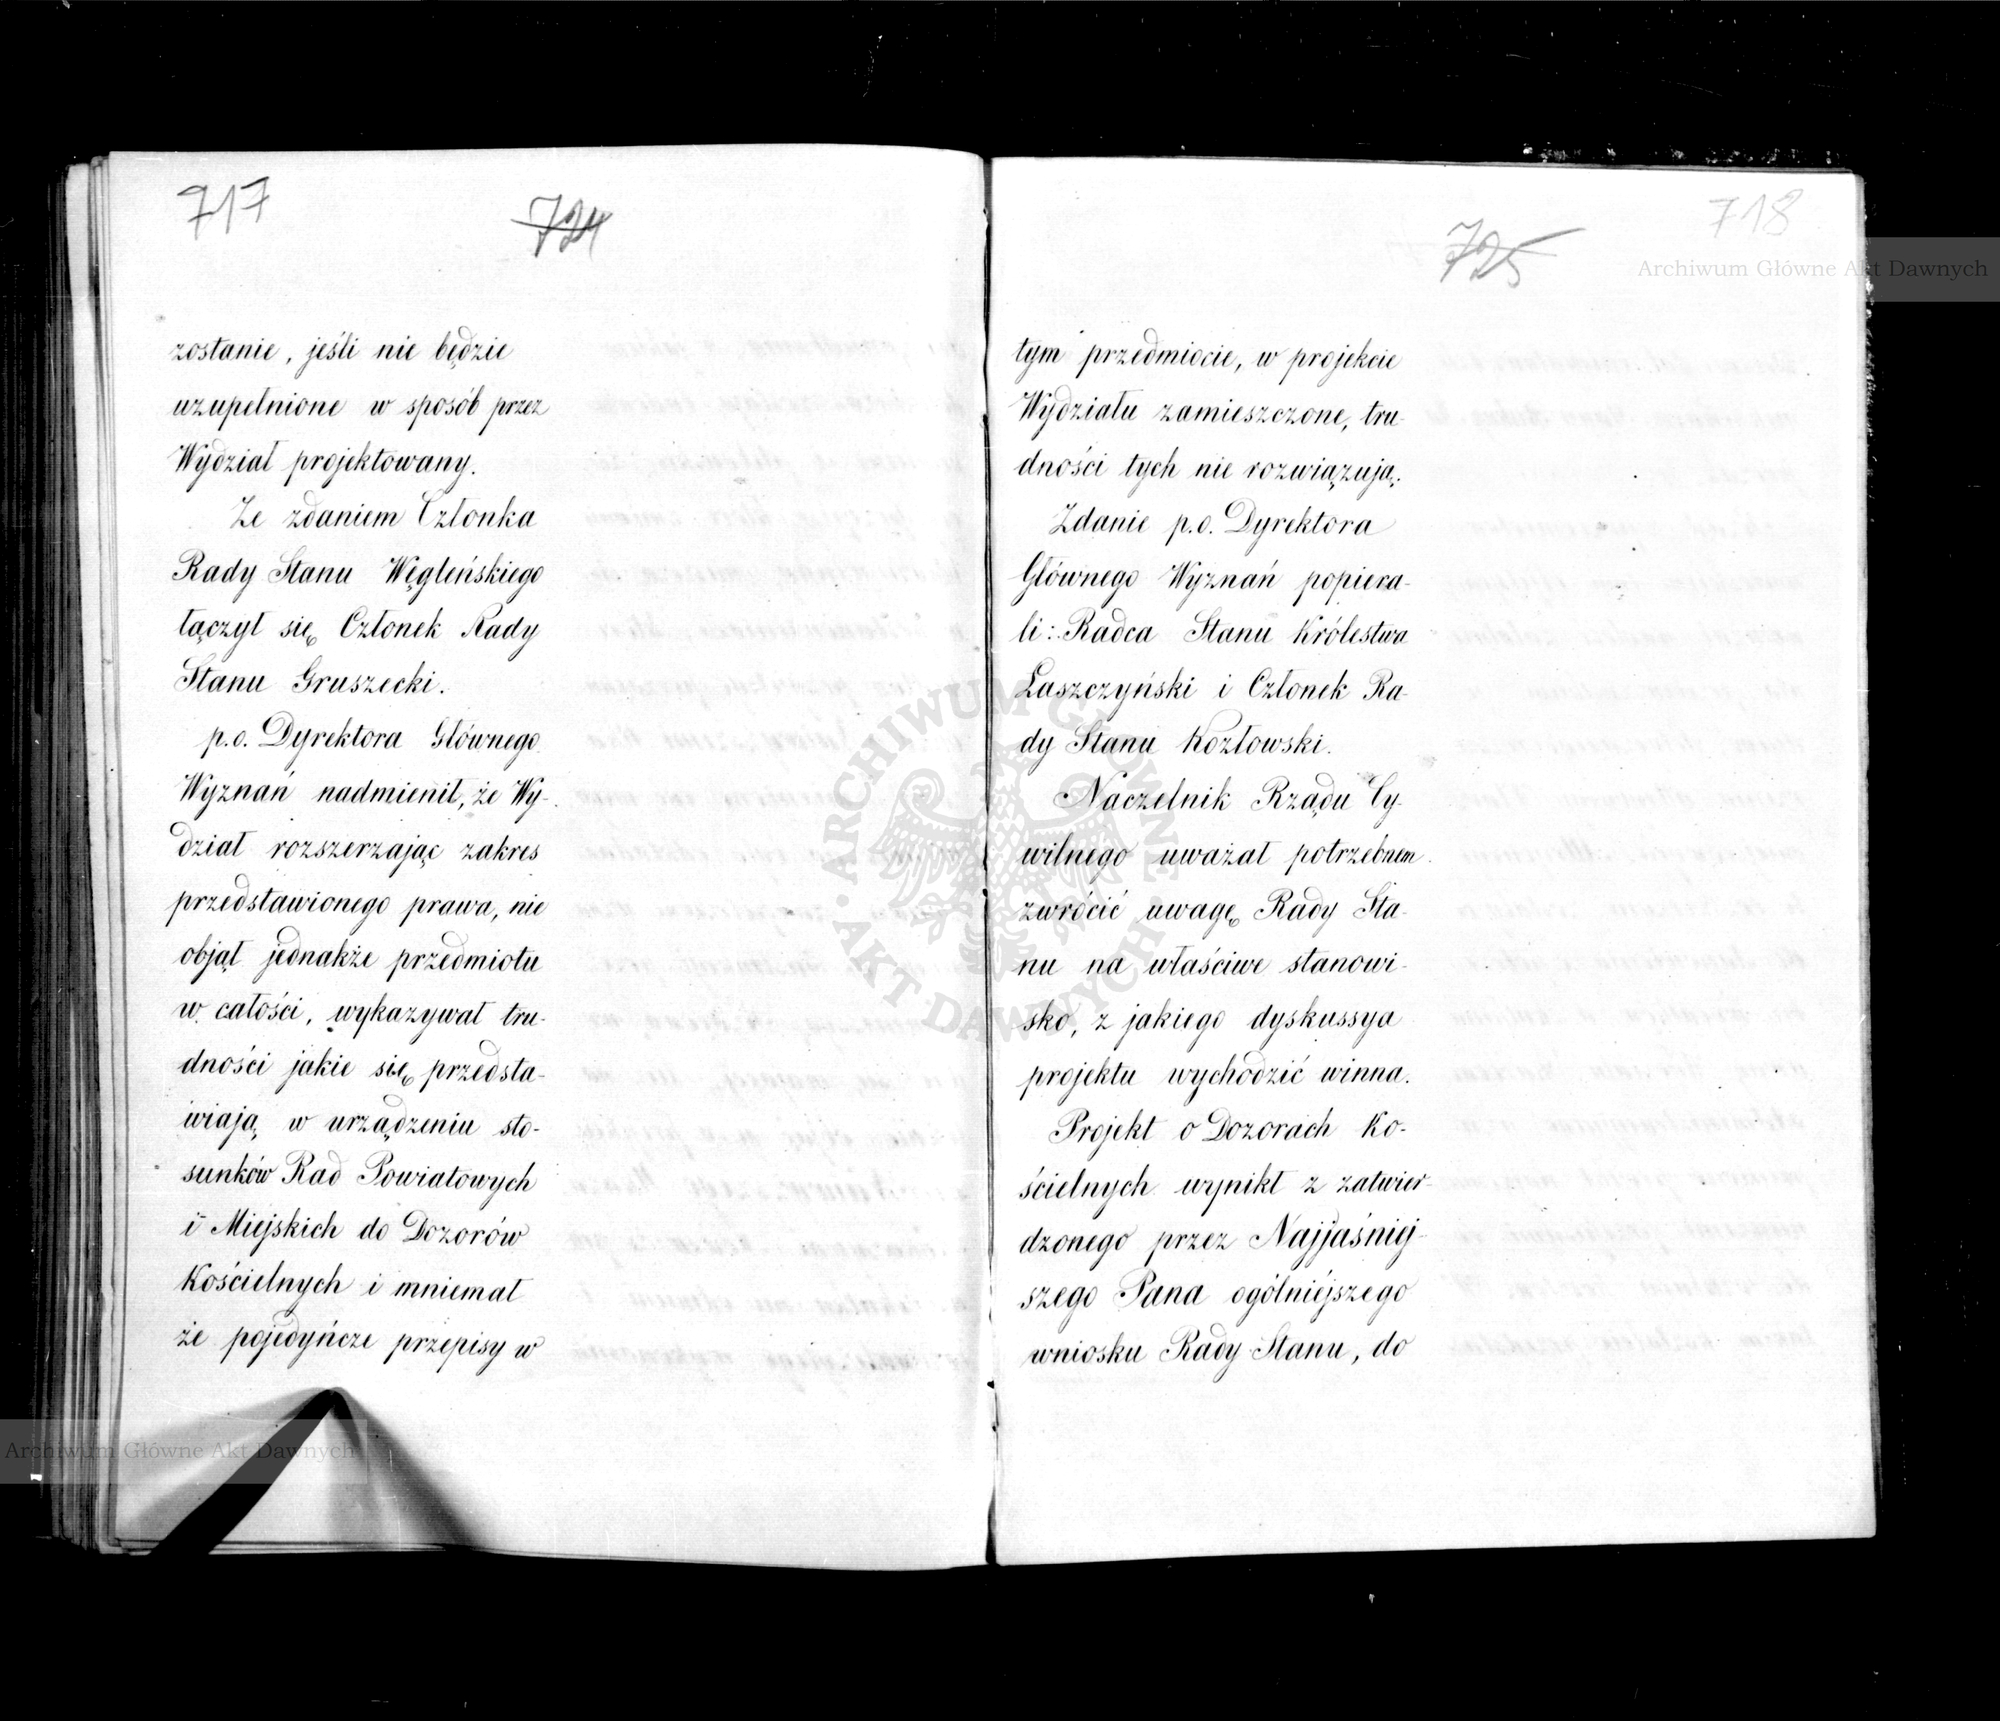 717
724
zostanie, jeśli nie będzie
uzupełnione w sposób przez
Wydział projektowany.
Ze zdaniem Członka
Rady Stanu Węgleńskiego
łączył się Członek Rady
Stanu Gruszecki.
p.o. Dyrektora Głównego
Wyznań nadmienił, że Wy-
dział rozszerzając zakres
przedstawionego prawa, nie
objął jednakże przedmiotu
w całości, wykazywał tru-
dności jakie się przedsta-
wiają w urządzeniu sto-
sunków Rad Powiatowych
i Miejskich do Dozorów
Kościelnych i mniemał
że pojedyńcze przepisy w
718
725
tym przedmiocie, w projekcie
Wydziału zamieszczone, tru-
dności tych nie rozwiązują.
Zdanie p.o. Dyrektora
Głównego Wyznań popiera-
li: Radca Stanu Królestwa
Łaszczyński i Członek Ra-
dy Stanu Kozłowski.
Naczelnik Rządu Cy-
wilnego uważał potrzebnem
zwrócić uwagę Rady Sta-
nu na właściwe stanowi-
sko, z jakiego dyskussya
projektu wychodzić winna.
Projekt o Dozorach Ko-
ścielnych wynikł z zatwier-
dzonego przez Najjaśniej-
szego Pana ogólniéjszego
wniosku Rady Stanu, do
Archiwum Główne Akt Dawnych
ARCHIWUM GŁÓWNE
AKT DAWNYCH
Archiwum Główne Akt Dawnych